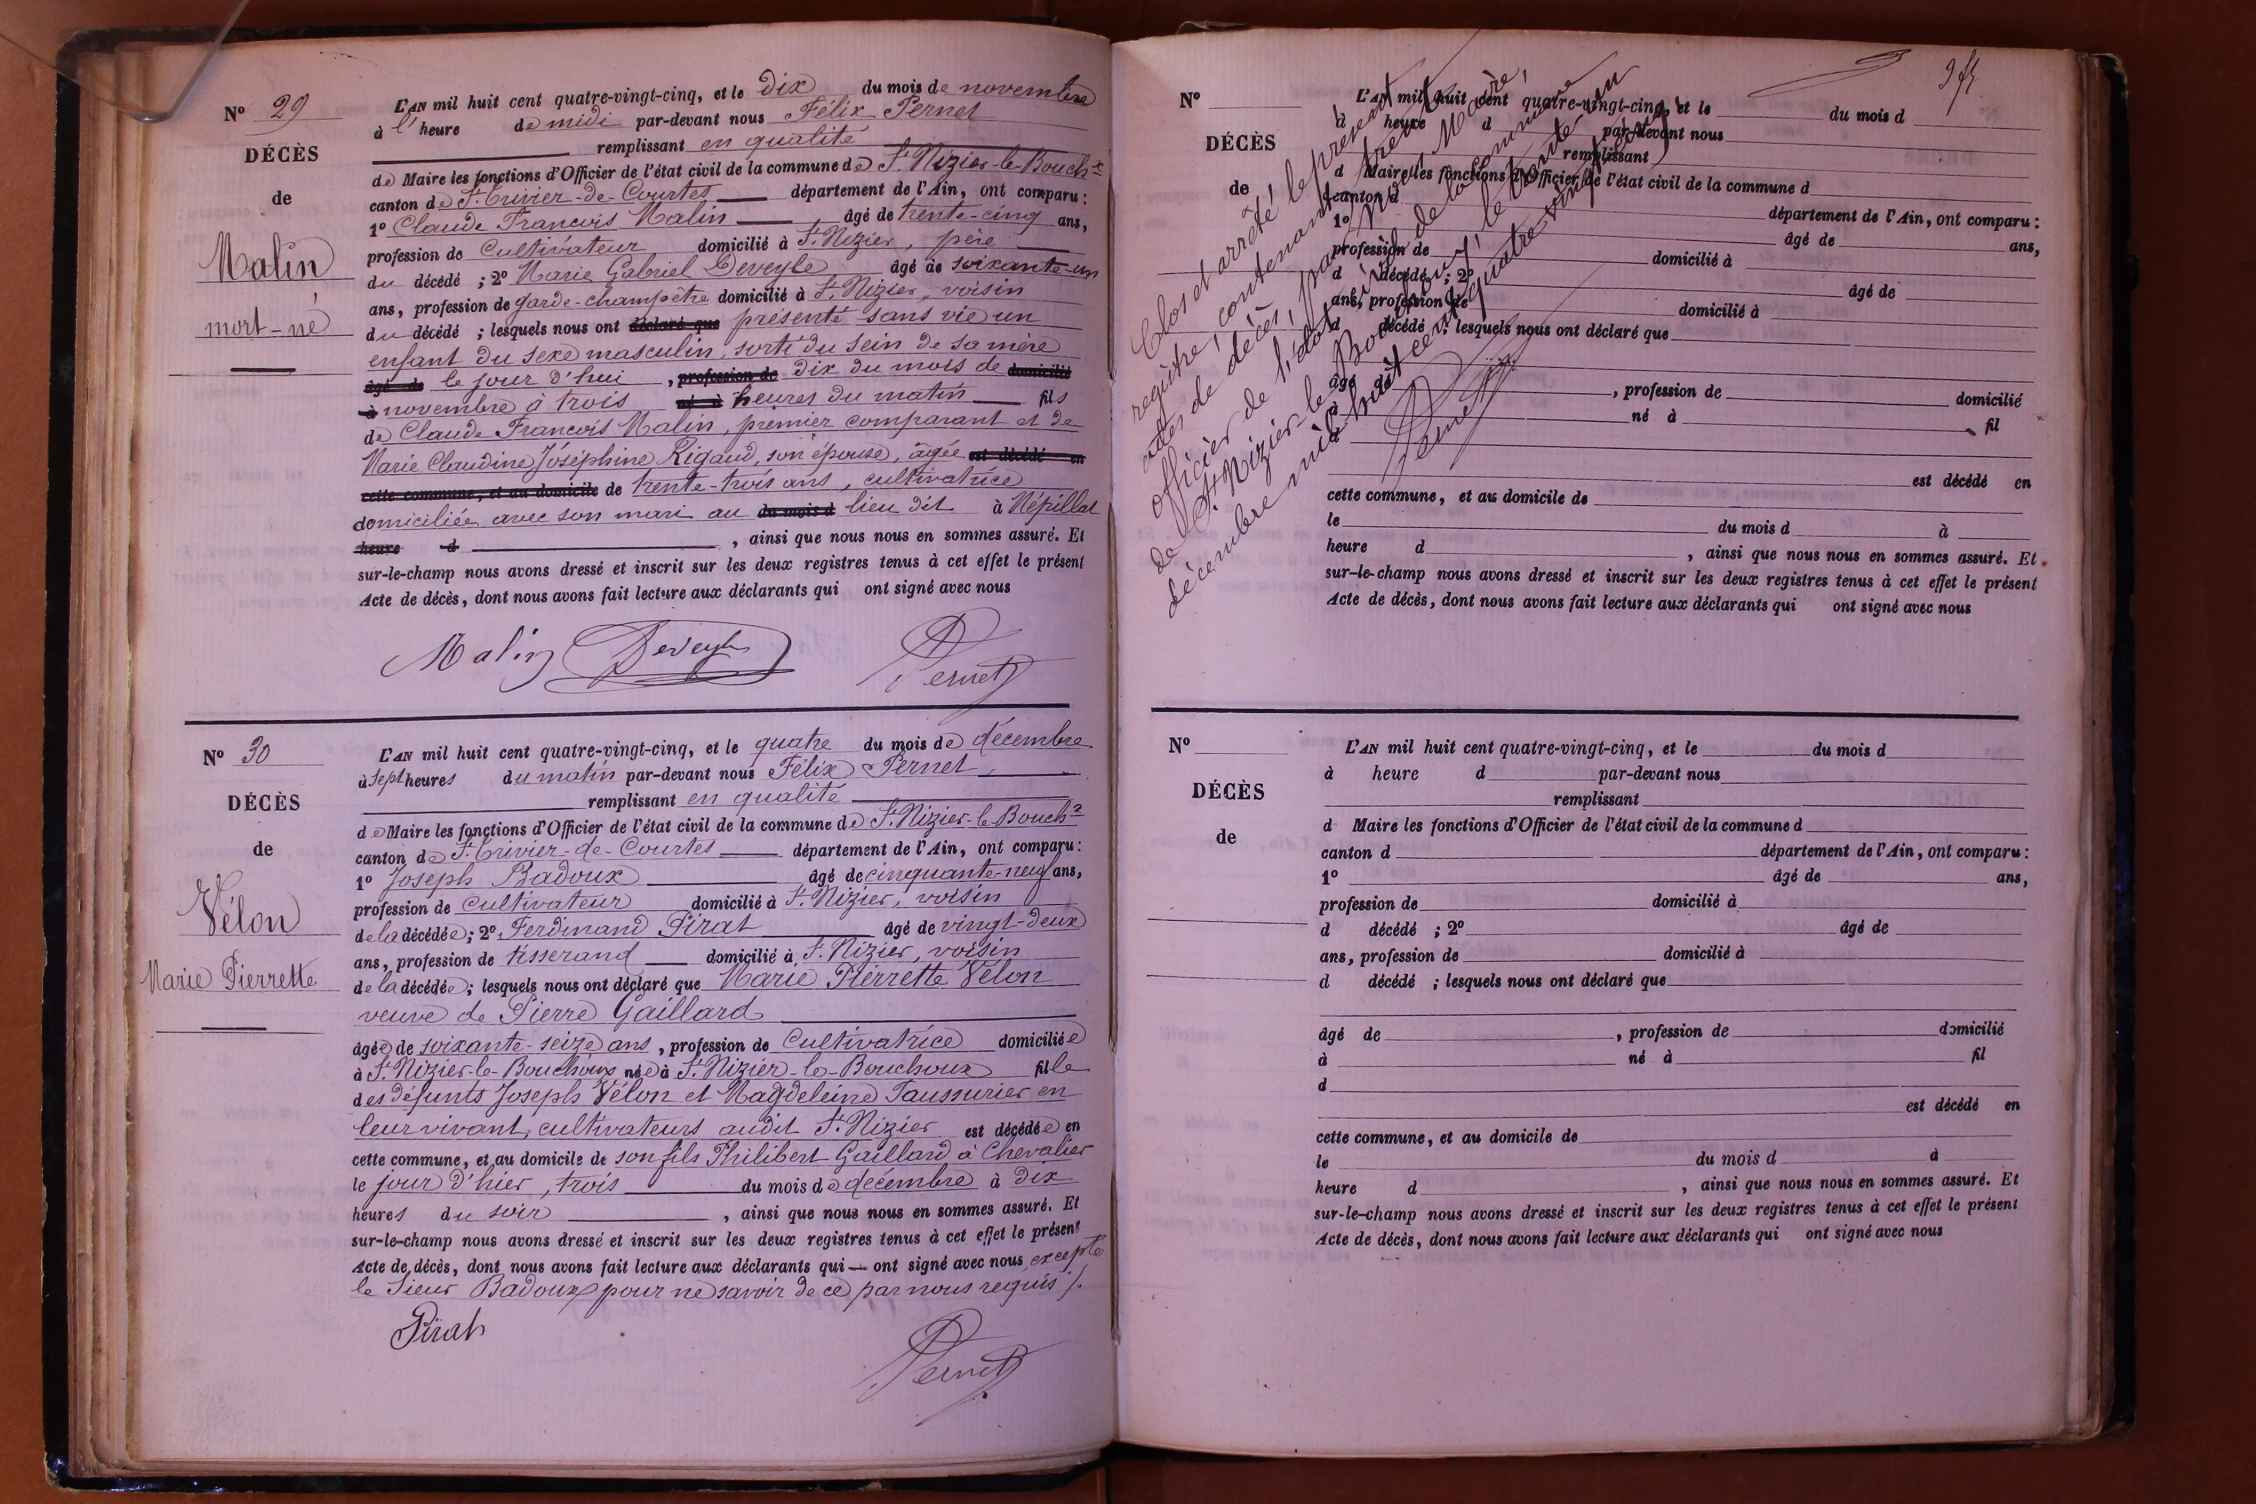 N° 29
DÉCÈS
de
Malin
mort-né
L'AN mil huit cent quatre-vingt-cinq, et le dix du mois de novembre
à l'heure de midi par-devant nous Félix Pernet
remplissant en qualité
de Maire les fonctions d'Officier de l'état civil de la commune de St. Nizier-le-Bouchx
canton de St. Trivier-de-Courtes département de l'Ain, ont comparu :
1° Claude François Malin âgé de trente-cinq ans,
profession de cultivateur domicilié à St. Nizier, père
du décédé ; 2° Marie Gabriel Deveyle âgé de soixante-un
ans, profession de garde-champêtre domicilié à St. Nizier, voisin
du décédé ; lesquels nous ont déclaré que présenté sans vie un
enfant du sexe masculin, sorti du sein de sa mère
âgé de le jour d'hui , profession de dix du mois de domicilié
à novembre à trois né à heures du matin fils
de Claude François Malin, premier comparant et de
Marie Claudine Joséphine Rigaud, son épouse, âgée est décédé en
cette commune, et au domicile de trente-trois ans, cultivatrice
domiciliée avec son mari au du mois d lieu dit à Népillat
heure d , ainsi que nous nous en sommes assuré. Et
sur-le-champ nous avons dressé et inscrit sur les deux registres tenus à cet effet le présent
Acte de décès, dont nous avons fait lecture aux déclarants qui ont signé avec nous
Malin Deveyle Pernet
N° 30
DÉCÈS
de
Vélon
Marie Pierrette
L'AN mil huit cent quatre-vingt-cinq, et le quatre du mois de décembre
à sept heures du matin par-devant nous Félix Pernet
remplissant en qualité
de Maire les fonctions d'Officier de l'état civil de la commune de St. Nizier-le-Bouchx
canton de St. Trivier-de-Courtes département de l'Ain, ont comparu :
1° Joseph Badoux âgé de cinquante-neuf ans,
profession de cultivateur domicilié à St. Nizier, voisin
de la décédée ; 2° Ferdinand Pirat âgé de vingt-deux
ans, profession de tisserand domicilié à St. Nizier, voisin
de la décédée ; lesquels nous ont déclaré que Marie Pierrette Vélon
veuve de Pierre Gaillard
âgée de soixante-seize ans , profession de cultivatrice domiciliée
à St. Nizier-le-Bouchoux née à St. Nizier-le-Bouchoux fille
des défunts Joseph Vélon et Magdeleine Faussurier en
leur vivant, cultivateurs audit St. Nizier est décédée en
cette commune, et au domicile de son fils Philibert Gaillard à Chevalier
le jour d'hier, trois du mois de décembre à dix
heures du soir , ainsi que nous nous en sommes assuré. Et
sur-le-champ nous avons dressé et inscrit sur les deux registres tenus à cet effet le présent
Acte de décès, dont nous avons fait lecture aux déclarants qui — ont signé avec nous excepté
le Sieur Badoux pour ne savoir de ce par nous requis ./.
Pirat
Pernet
N°
DÉCÈS
de
L'AN mil huit cent quatre-vingt-cinq, et le du mois d
à heure d par-devant nous
remplissant
d Maire les fonctions d'Officier de l'état civil de la commune d
canton d département de l'Ain, ont comparu :
1° âgé de ans,
profession de domicilié à
d décédé ; 2° âgé de
ans, profession de domicilié à
d décédé ; lesquels nous ont déclaré que
âgé de , profession de domicilié
à né à fil
d
est décédé en
cette commune, et au domicile de
le du mois d à
heure d , ainsi que nous nous en sommes assuré. Et
sur-le-champ nous avons dressé et inscrit sur les deux registres tenus à cet effet le présent
Acte de décès, dont nous avons fait lecture aux déclarants qui ont signé avec nous
Clos et arrêté le présent
registre, contenant trente
actes de décès, par Nous Maire,
officier de l'état civil de la commune
de St. Nizier-le-Bouchoux, le trente-un
décembre mil huit cent quatre-vingt-cinq
Pernet
N°
DÉCÈS
de
L'AN mil huit cent quatre-vingt-cinq, et le du mois d
à heure d par-devant nous
remplissant
d Maire les fonctions d'Officier de l'état civil de la commune d
canton d département de l'Ain, ont comparu :
1° âgé de ans,
profession de domicilié à
d décédé ; 2° âgé de
ans, profession de domicilié à
d décédé ; lesquels nous ont déclaré que
âgé de , profession de domicilié
à né à fil
d
est décédé en
cette commune, et au domicile de
le du mois d à
heure d , ainsi que nous nous en sommes assuré. Et
sur-le-champ nous avons dressé et inscrit sur les deux registres tenus à cet effet le présent
Acte de décès, dont nous avons fait lecture aux déclarants qui ont signé avec nous